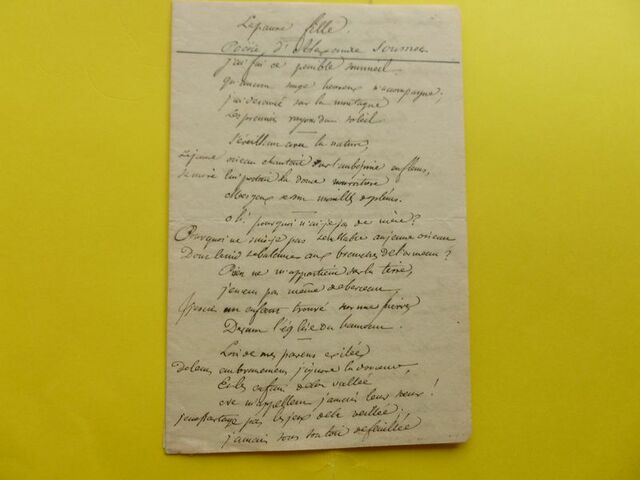 La pauvre fille.
Poésie d'Alexandre Soumet
j'ai fui ce pénible sommeil
qu'aucun songe heureux n'accompagne;
j'ai devancé sur la montagne
Les premiers rayons du soleil.
S'éveillant avec la nature,
Le jeune oiseau chantait sur l'aubépine en fleurs,
Sa mère lui portait la douce nourriture
Mes yeux se sont mouillés de pleurs.
Oh! pourquoi n'ai-je pas de mère?
Pourquoi ne suis-je pas semblable au jeune oiseau
Dont le nid se balance aux branches de l'ormeau?
Rien ne m'appartient sur la terre,
je n'eus pas même de berceau,
Et je suis un enfant trouvé sur une pierre
Devant l'église du hameau.
Loin de mes parens exilée
De leurs embrassemens j'ignore la douceur,
Et les enfans de la vallée
Ne m'appellent jamais leur sœur!
je ne partage pas les jeux de la veillée;
jamais sous son toit de feuillée